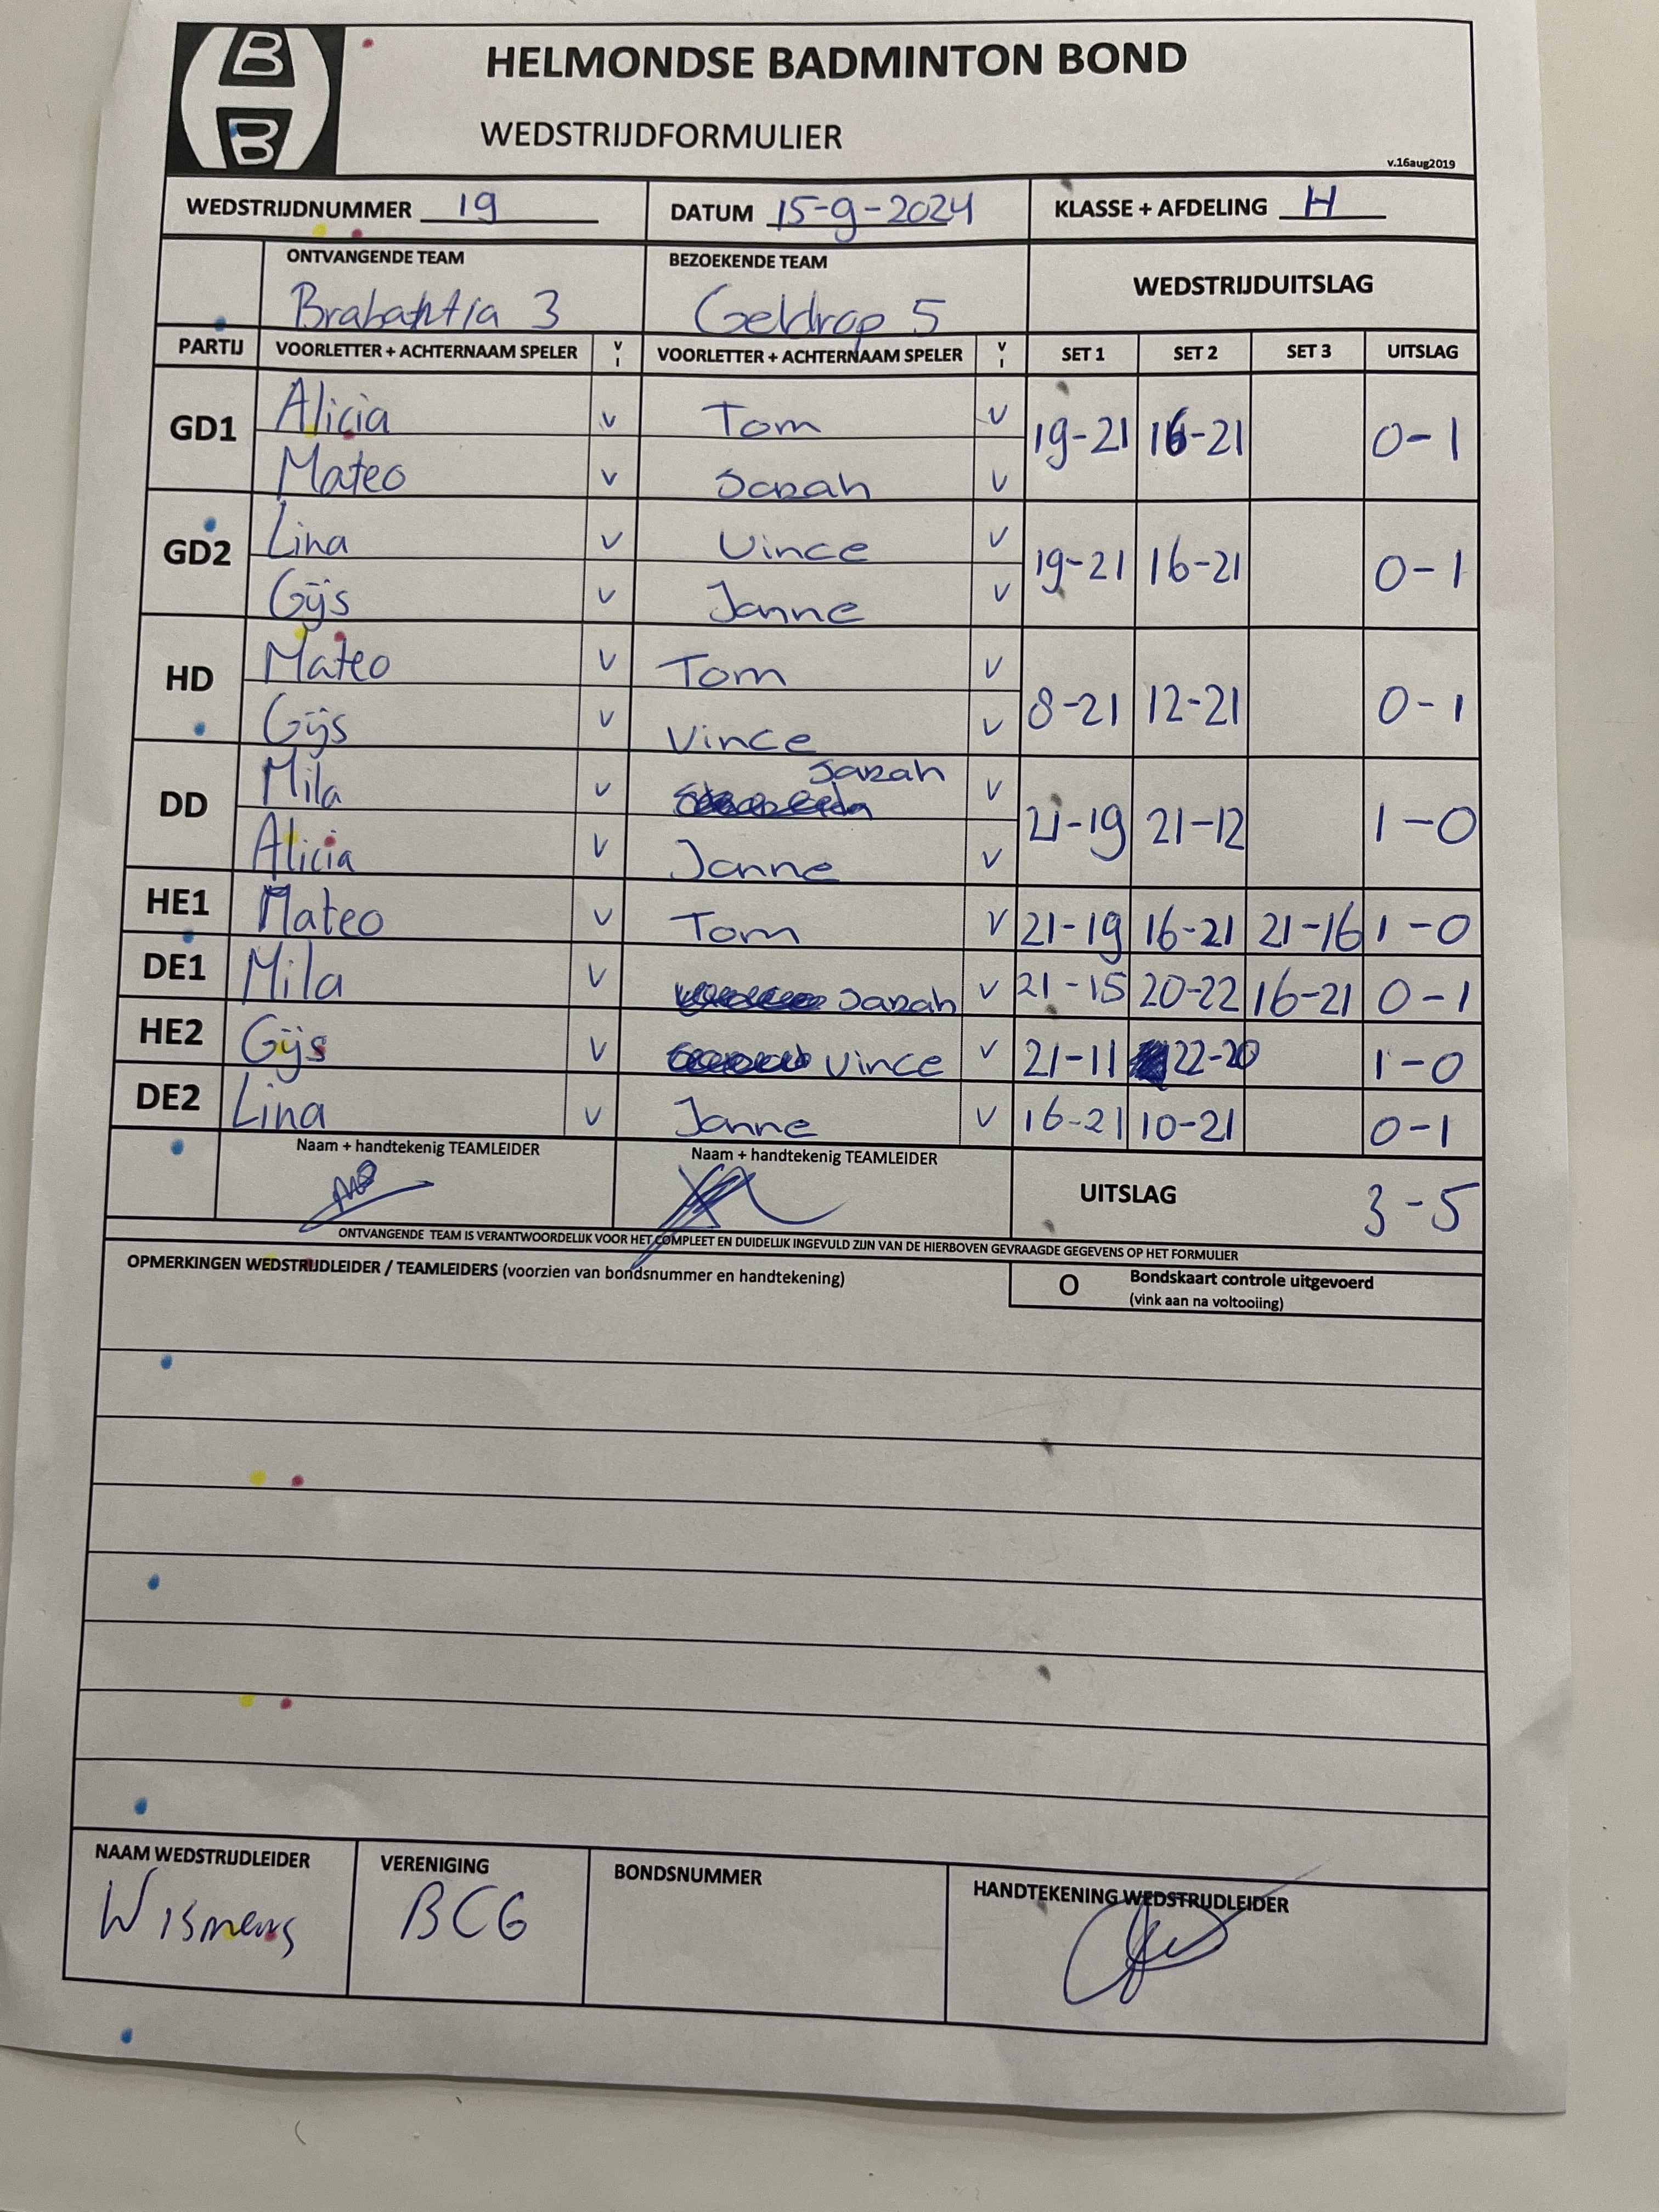 B
B
HELMONDSE BADMINTON BOND
WEDSTRIJDFORMULIER
v.16aug2019
WEDSTRIJDNUMMER 19 DATUM 15-9-2024 KLASSE + AFDELING H
ONTVANGENDE TEAM BEZOEKENDE TEAM WEDSTRIJDUITSLAG
Brabantia 3 Geldrop 5
PARTIJ VOORLETTER + ACHTERNAAM SPELER V I VOORLETTER + ACHTERNAAM SPELER V I SET 1 SET 2 SET 3 UITSLAG
GD1 Alicia v Tom v 19-21 16-21 0-1
Mateo v Sarah v
GD2 Lina v Vince v 19-21 16-21 0-1
Gijs v Janne v
HD Mateo v Tom v 8-21 12-21 0-1
Gijs v Vince v
DD Mila v Sarah v 21-19 21-12 1-0
Alicia v Janne v
HE1 Mateo v Tom v 21-19 16-21 21-16 1-0
DE1 Mila v Sarah v 21-15 20-22 16-21 0-1
HE2 Gijs v Vince v 21-11 22-20 1-0
DE2 Lina v Janne v 16-21 10-21 0-1
Naam + handtekenig TEAMLEIDER Naam + handtekenig TEAMLEIDER
UITSLAG 3-5
ONTVANGENDE TEAM IS VERANTWOORDELIJK VOOR HET COMPLEET EN DUIDELIJK INGEVULD ZIJN VAN DE HIERBOVEN GEVRAAGDE GEGEVENS OP HET FORMULIER
OPMERKINGEN WEDSTRIJDLEIDER / TEAMLEIDERS (voorzien van bondsnummer en handtekening)
O Bondskaart controle uitgevoerd
(vink aan na voltooiing)
NAAM WEDSTRIJDLEIDER VERENIGING BONDSNUMMER HANDTEKENING WEDSTRIJDLEIDER
Wismens BCG